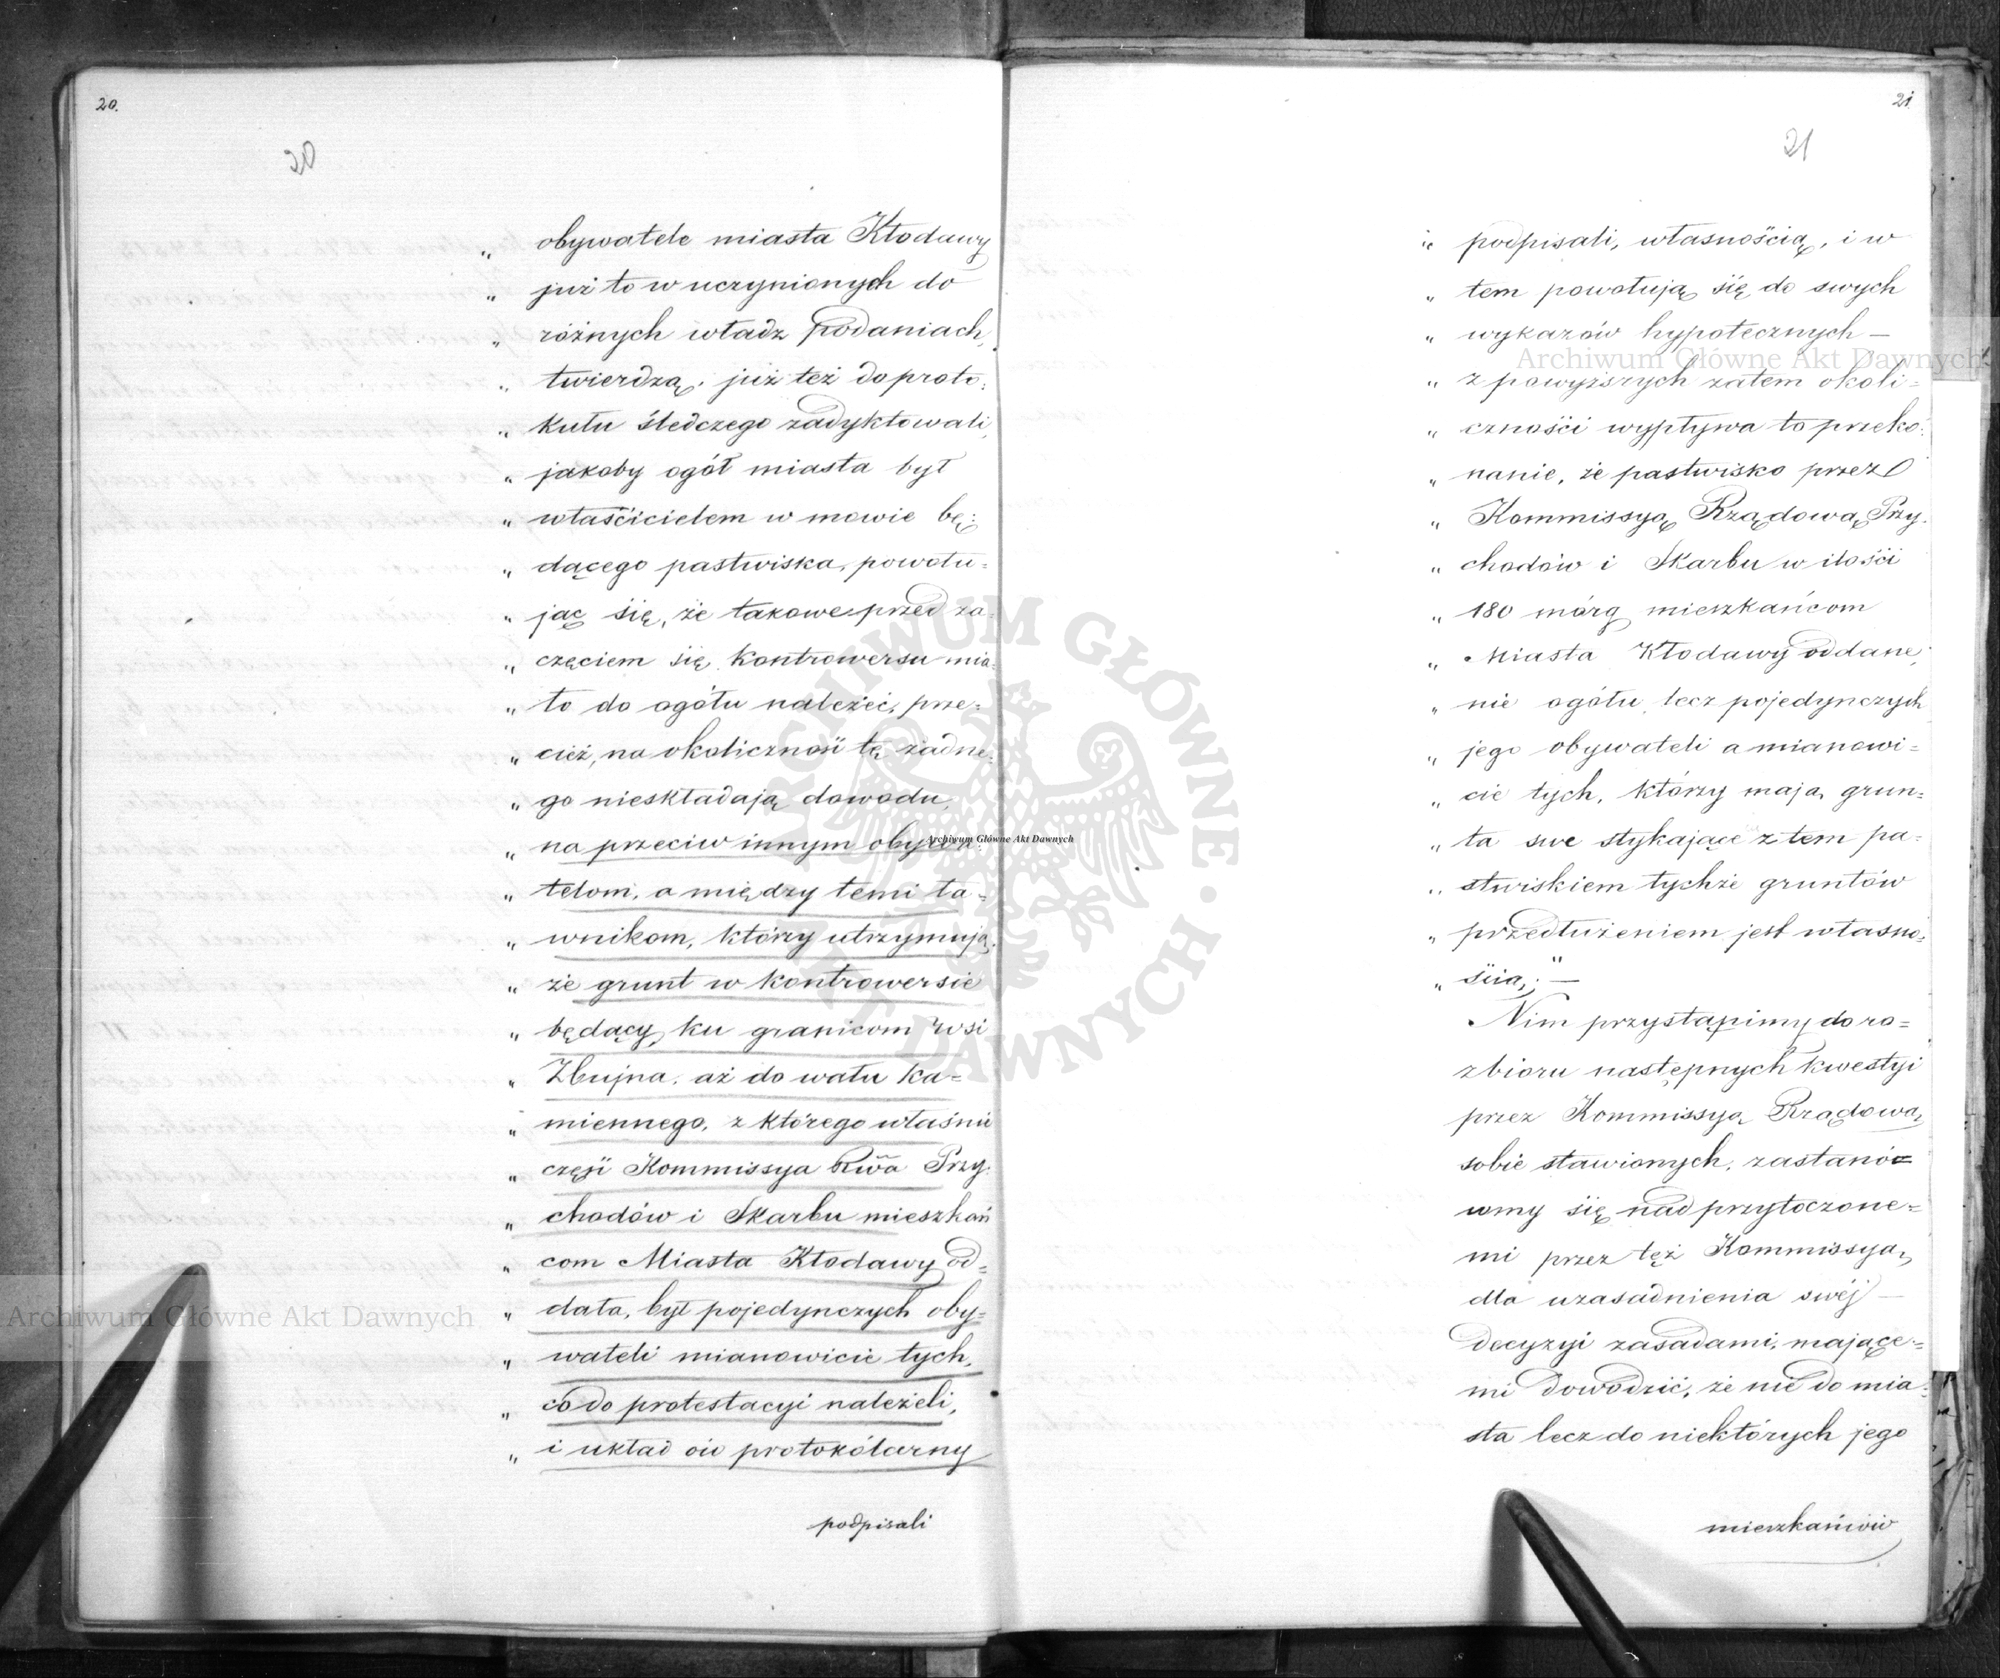 20.
20
„ obywatele miasta Kłodawy
„ już to w uczynionych do
„ różnych władz podaniach,
„ twierdzą, już też do proto-
„ kułu śledczego zadyktowali,
„ jakoby ogół miasta był
„ właścicielem w mowie bę-
„ dącego pastwiska, powołu-
„ jąc się, że takowe przed za-
„ częciem się kontrowersu mia-
„ ło do ogółu należéć, prze-
„ cież, na okoliczność tę żadne-
„ go nieskładają dowodu,
„ na przeciw innym obywa-
„ telom, a między temi ła-
„ wnikom, którzy utrzymują,
„ że grunt w kontrowersie
„ będący, ku granicom wsi
„ Zbujna, aż do wału ka-
„ miennego, z którego właśnie
„ części Kommissya Rwa Przy-
„ chodów i Skarbu mieszkań
„ com Miasta Kłodawy od-
„ dała, był pojedynczych oby-
„ wateli mianowicie tych,
„ co do protestacyi należeli,
„ i układ ów protokólarny
podpisali
21.
21
„ podpisali, własnością, i w
„ tem powołują się do swych
„ wykazów hypotecznych —
„ z powyższych zatem okoli-
„ czności wypływa to przeko-
„ nanie, że pastwisko przez
„ Kommissyą Rządową Przy-
„ chodów i Skarbu w ilości
„ 180 mórg mieszkańcom
„ Miasta Kłodawy oddane,
„ nie ogółu lecz pojedynczych
„ jego obywateli a mianowi-
„ cie tych, którzy mają grun-
„ ta swe stykające z tem pa-
„ stwiskiem tychże gruntów
„ przedłużeniem jest własno-
„ ścią;" —
Nim przystąpimy do ro-
zbioru następnych kwestyi
przez Kommissyą Rządową
sobie stawionych, zastanó-
wmy się nad przytoczone-
mi przez tęż Kommissyą,
dla uzasadnienia swéj —
decyzyi zasadami, mające-
mi dowodzić, że nie do mia-
sta lecz do niektórych jego
mieszkańców
Archiwum Główne Akt Dawnych
Archiwum Główne Akt Dawnych
Archiwum Główne Akt Dawnych
ARCHIWUM GŁÓWNE • AKT DAWNYCH •